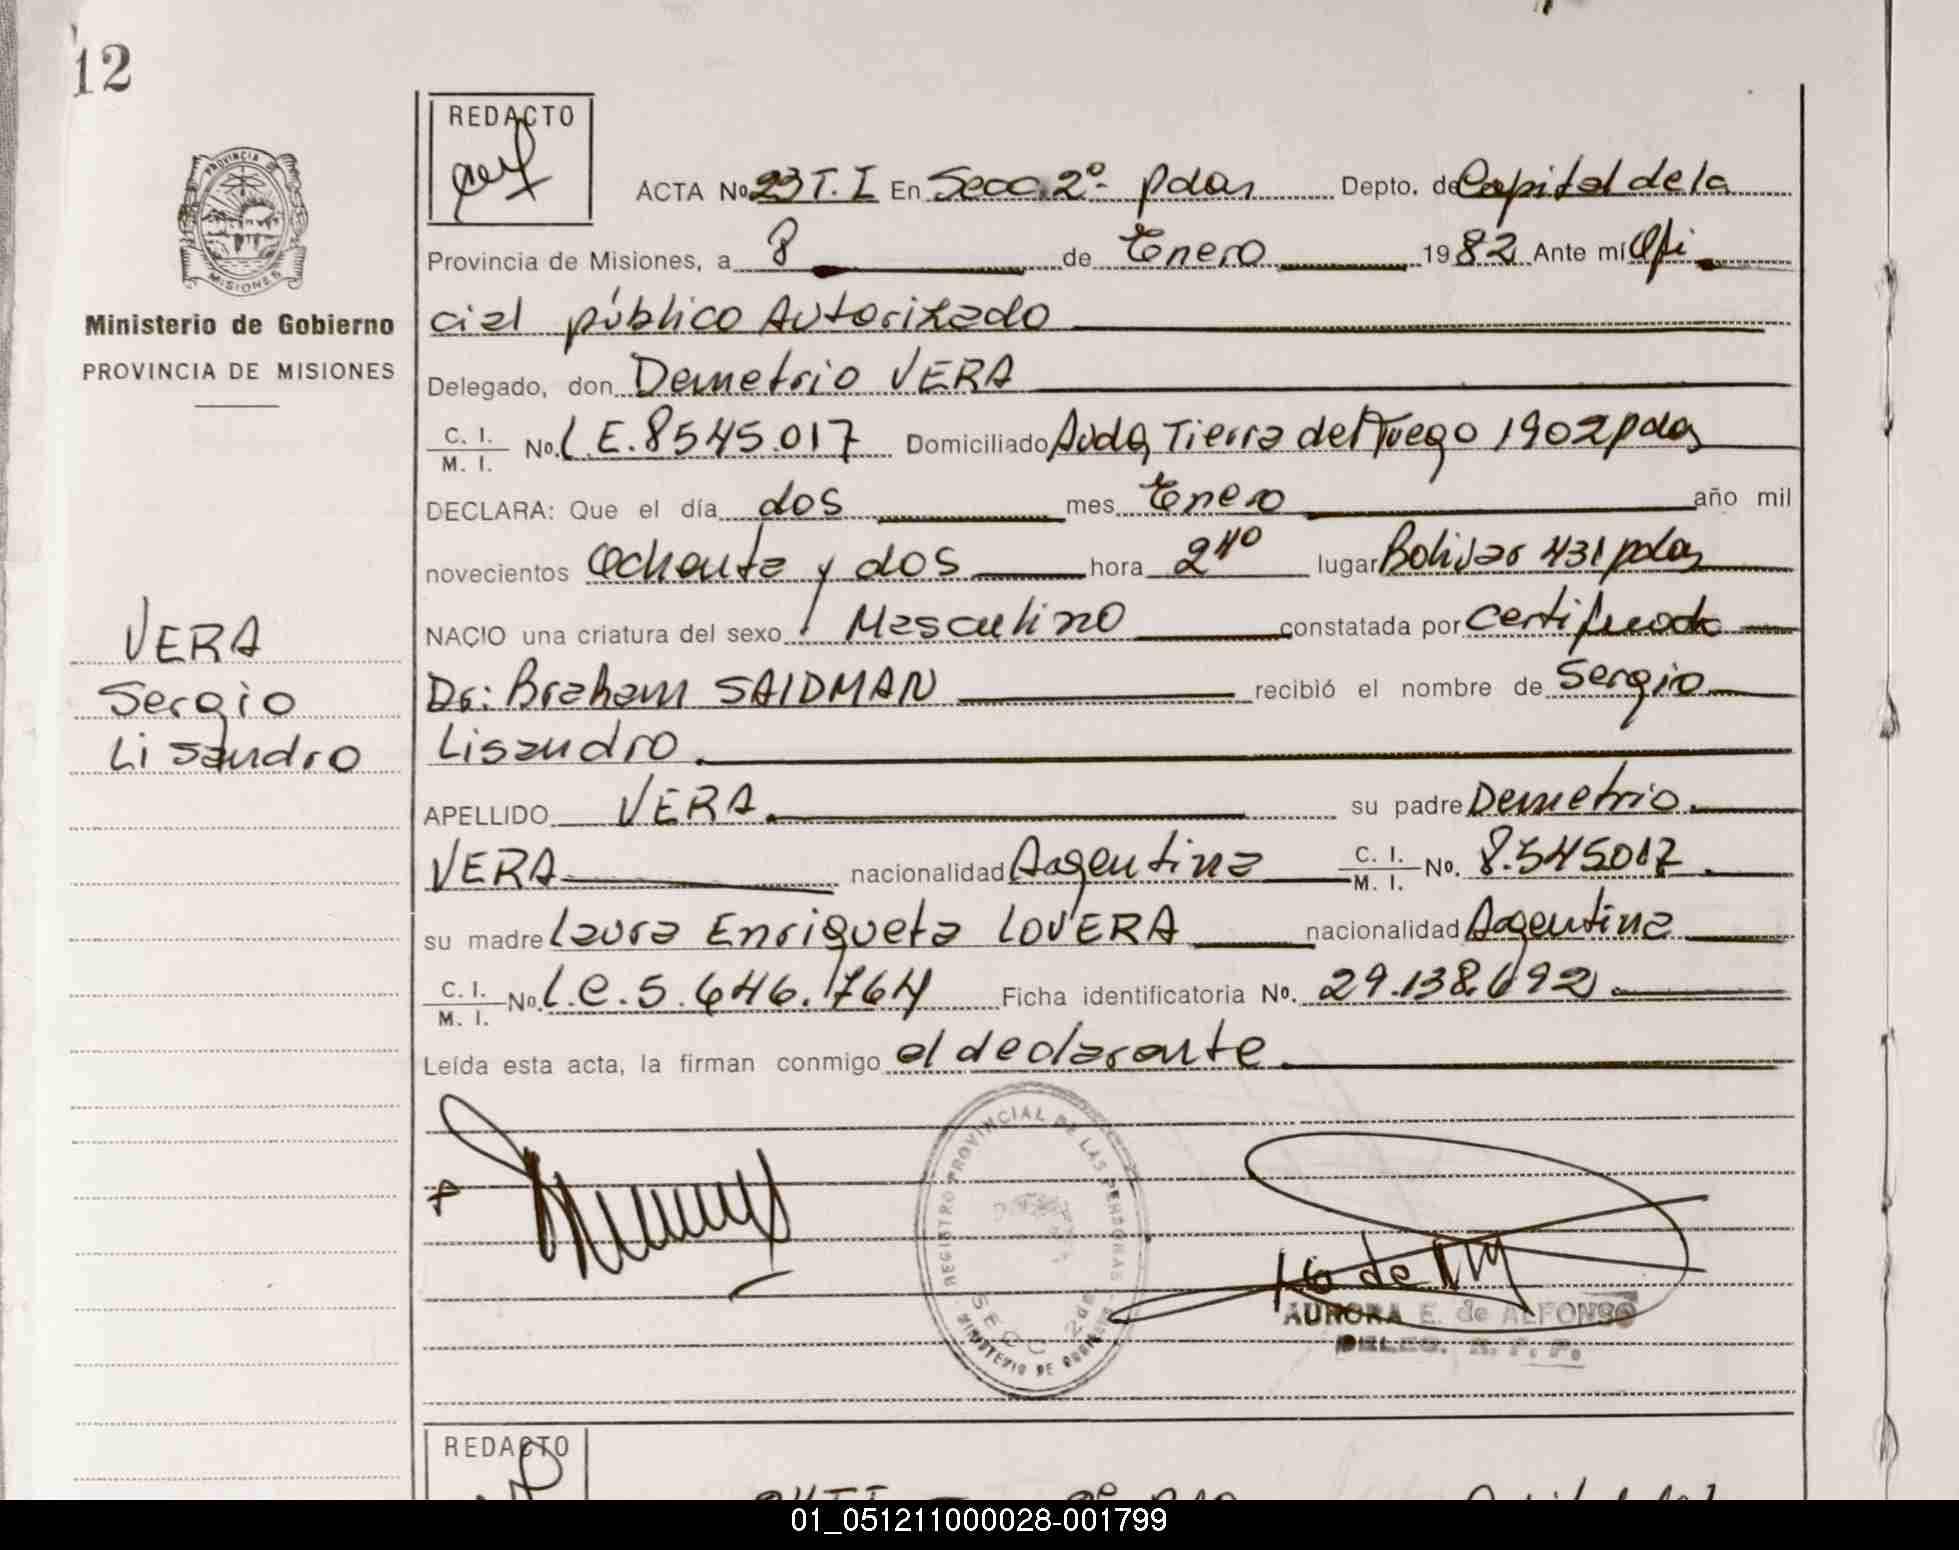 12
REDACTO
ACTA No. 23 T. I En Secc. 2º- pdas Depto. de Capital de la
PROVINCIA DE MISIONES
Provincia de Misiones, a 8 de Enero 1982 Ante mí Ofi
Ministerio de Gobierno
PROVINCIA DE MISIONES
cial público Autorizado
Delegado, don Demetrio VERA
C. I. M. I. No. L.E. 8545.017 Domiciliado Avda, Tierra del Fuego 1902 pdas
DECLARA: Que el día dos mes Enero año mil
novecientos Ochenta y dos hora 2 40 lugar Bolivar 431 pdas
NACIO una criatura del sexo Masculino constatada por certificado
VERA
Sergio
Lisandro
Dr: Braham SAIDMAN recibió el nombre de Sergio
Lisandro
APELLIDO VERA su padre Demetrio
VERA nacionalidad Argentina C. I. M. I. No. 8.545017
su madre Laura Enriqueta LOVERA nacionalidad Argentina
C. I. M. I. No. L.C. 5.646.764 Ficha identificatoria No. 29.138.692
Leída esta acta, la firman conmigo el declarante
REGISTRO PROVINCIAL DE LAS PERSONAS
SECC 2da
MINISTERIO DE GOBIERNO
AURORA E. de ALFONSO
DELEG. R. P. P.
REDACTO
01_051211000028-001799